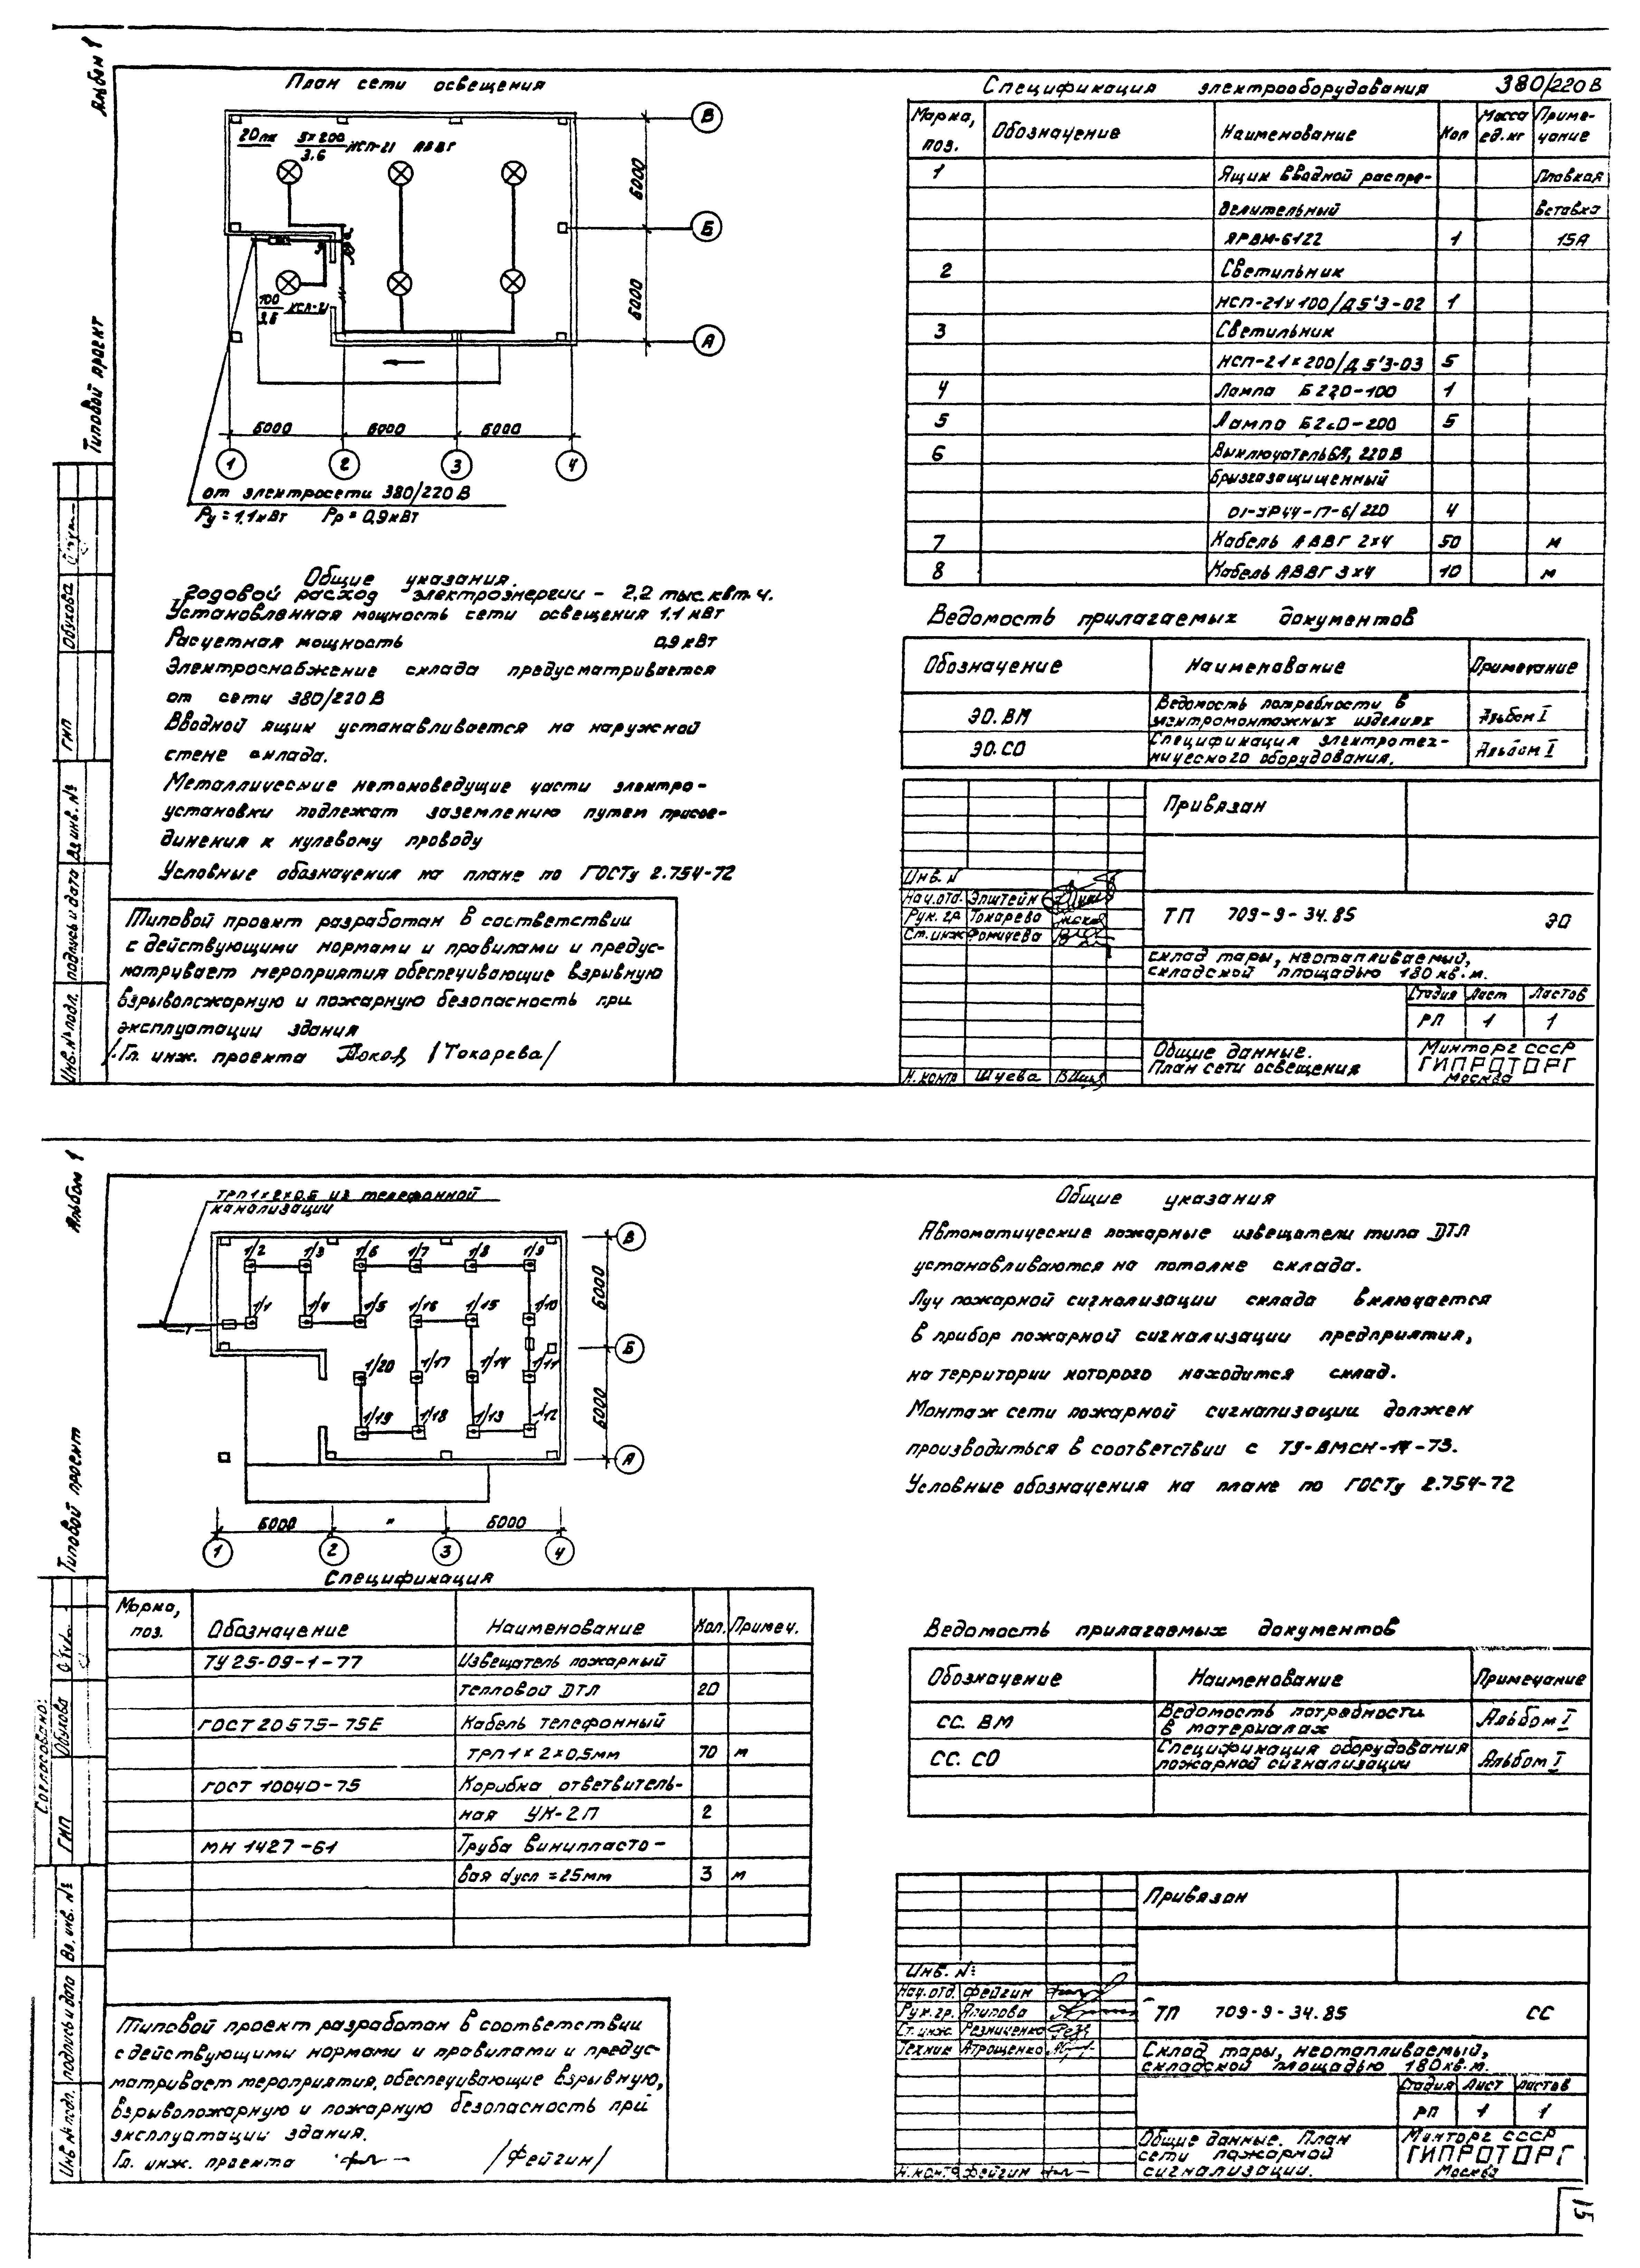 Альбом 1
Типовой проект
План сети освещения
20 лк 5×200/3.6 НСП-21 АВВГ
100/3.6 НСП-21
В
Б
А
6000
6000
6000 6000 6000
1 2 3 4
от электросети 380/220 В
Ру = 1,1 кВт Рр = 0,9 кВт
Общие указания.
Годовой расход электроэнергии - 2,2 тыс. квт. ч.
Установленная мощность сети освещения 1,1 кВт
Расчетная мощность 0,9 кВт
Электроснабжение склада предусматривается
от сети 380/220 В
Вводной ящик устанавливается на наружной
стене склада.
Металлические нетоковедущие части электро-
установки подлежат заземлению путем присое-
динения к нулевому проводу
Условные обозначения на плане по ГОСТу 2.754-72
Типовой проект разработан в соответствии
с действующими нормами и правилами и предус-
матривает мероприятия обеспечивающие взрывную
взрывопожарную и пожарную безопасность при
эксплуатации здания
Гл. инж. проекта /Токарева/
Спецификация электрооборудования 380/220 В
Марка, поз. Обозначение Наименование Кол Масса ед. кг Приме-чание
1 Ящик вводной распре- Плавкая
делительный вставка
ЯРВМ-6122 1 15А
2 Светильник
НСП-21×100/Д5'3-02 1
3 Светильник
НСП-21×200/Д5'3-03 5
4 Лампа Б 220-100 1
5 Лампа Б 220-200 5
6 Выключатель 6А, 220 В
брызгазащищенный
01-JP44-17-6/220 4
7 Кабель АВВГ 2×4 50 м
8 Кабель АВВГ 3×4 10 м
Ведомость прилагаемых документов
Обозначение Наименование Примечание
ЭО.ВМ Ведомость потребности в электромонтажных изделиях Альбом I
ЭО.СО Спецификация электротех-нического оборудования. Альбом I
Привязан
Инв. N
Нач. отд. Эпштейн
Рук. гр. Токарева
Ст. инж Фомичева
Н. контр Шуева
ТП 709-9-34.85 ЭО
Склад тары, неотапливаемый,
складской площадью 180 кв. м.
Стадия Лист Листов
РП 1 1
Общие данные.
План сети освещения
Минторг СССР
ГИПРОТОРГ
Москва
ГИП Обухова
Инв. № подл. Подпись и дата Вз. инв. №
Альбом 1
Типовой проект
ТРП 1×2×0.5 из телефонной
канализации
1/2 1/3 1/6 1/7 1/8 1/9
1/1 1/4 1/5 1/16 1/15 1/10
1/20 1/17 1/14 1/11
1/19 1/18 1/13 1/12
В
Б
А
6000
6000
6000 " 6000
1 2 3 4
Общие указания
Автоматические пожарные извещатели типа ДТЛ
устанавливаются на потолке склада.
Луч пожарной сигнализации склада включается
в прибор пожарной сигнализации предприятия,
на территории которого находится склад.
Монтаж сети пожарной сигнализации должен
производиться в соответствии с ТУ-ВМСН-14-73.
Условные обозначения на плане по ГОСТу 2.754-72
Спецификация
Марка, поз. Обозначение Наименование Кол. Примеч.
ТУ 25-09-1-77 Извещатель пожарный
тепловой ДТЛ 20
ГОСТ 20575-75Е Кабель телефонный
ТРП 1×2×0,5мм 70 м
ГОСТ 10040-75 Коробка ответвитель-
ная УК-2П 2
МН 1427-61 Труба винипласто-
вая dусл = 25мм 3 м
Ведомость прилагаемых документов
Обозначение Наименование Примечание
СС. ВМ Ведомость потребности в материалах Альбом I
СС. СО Спецификация оборудования пожарной сигнализации Альбом I
Типовой проект разработан в соответствии
с действующими нормами и правилами и предус-
матривает мероприятия, обеспечивающие взрывную,
взрывопожарную и пожарную безопасность при
эксплуатации здания.
Гл. инж. проекта /Фейгин/
Привязан
Инв. №
Нач. отд. Фейгин
Рук. гр. Агипова
Ст. инж. Резниченко
Техник Атрощенко
Н. контр Фейгин
ТП 709-9-34.85 СС
Склад тары, неотапливаемый,
складской площадью 180 кв. м.
Стадия Лист Листов
РП 1 1
Общие данные. План
сети пожарной
сигнализации.
Минторг СССР
ГИПРОТОРГ
Москва
Согласовано:
ГИП Обухова
Инв № подл. Подпись и дата Вз. инв. №
15